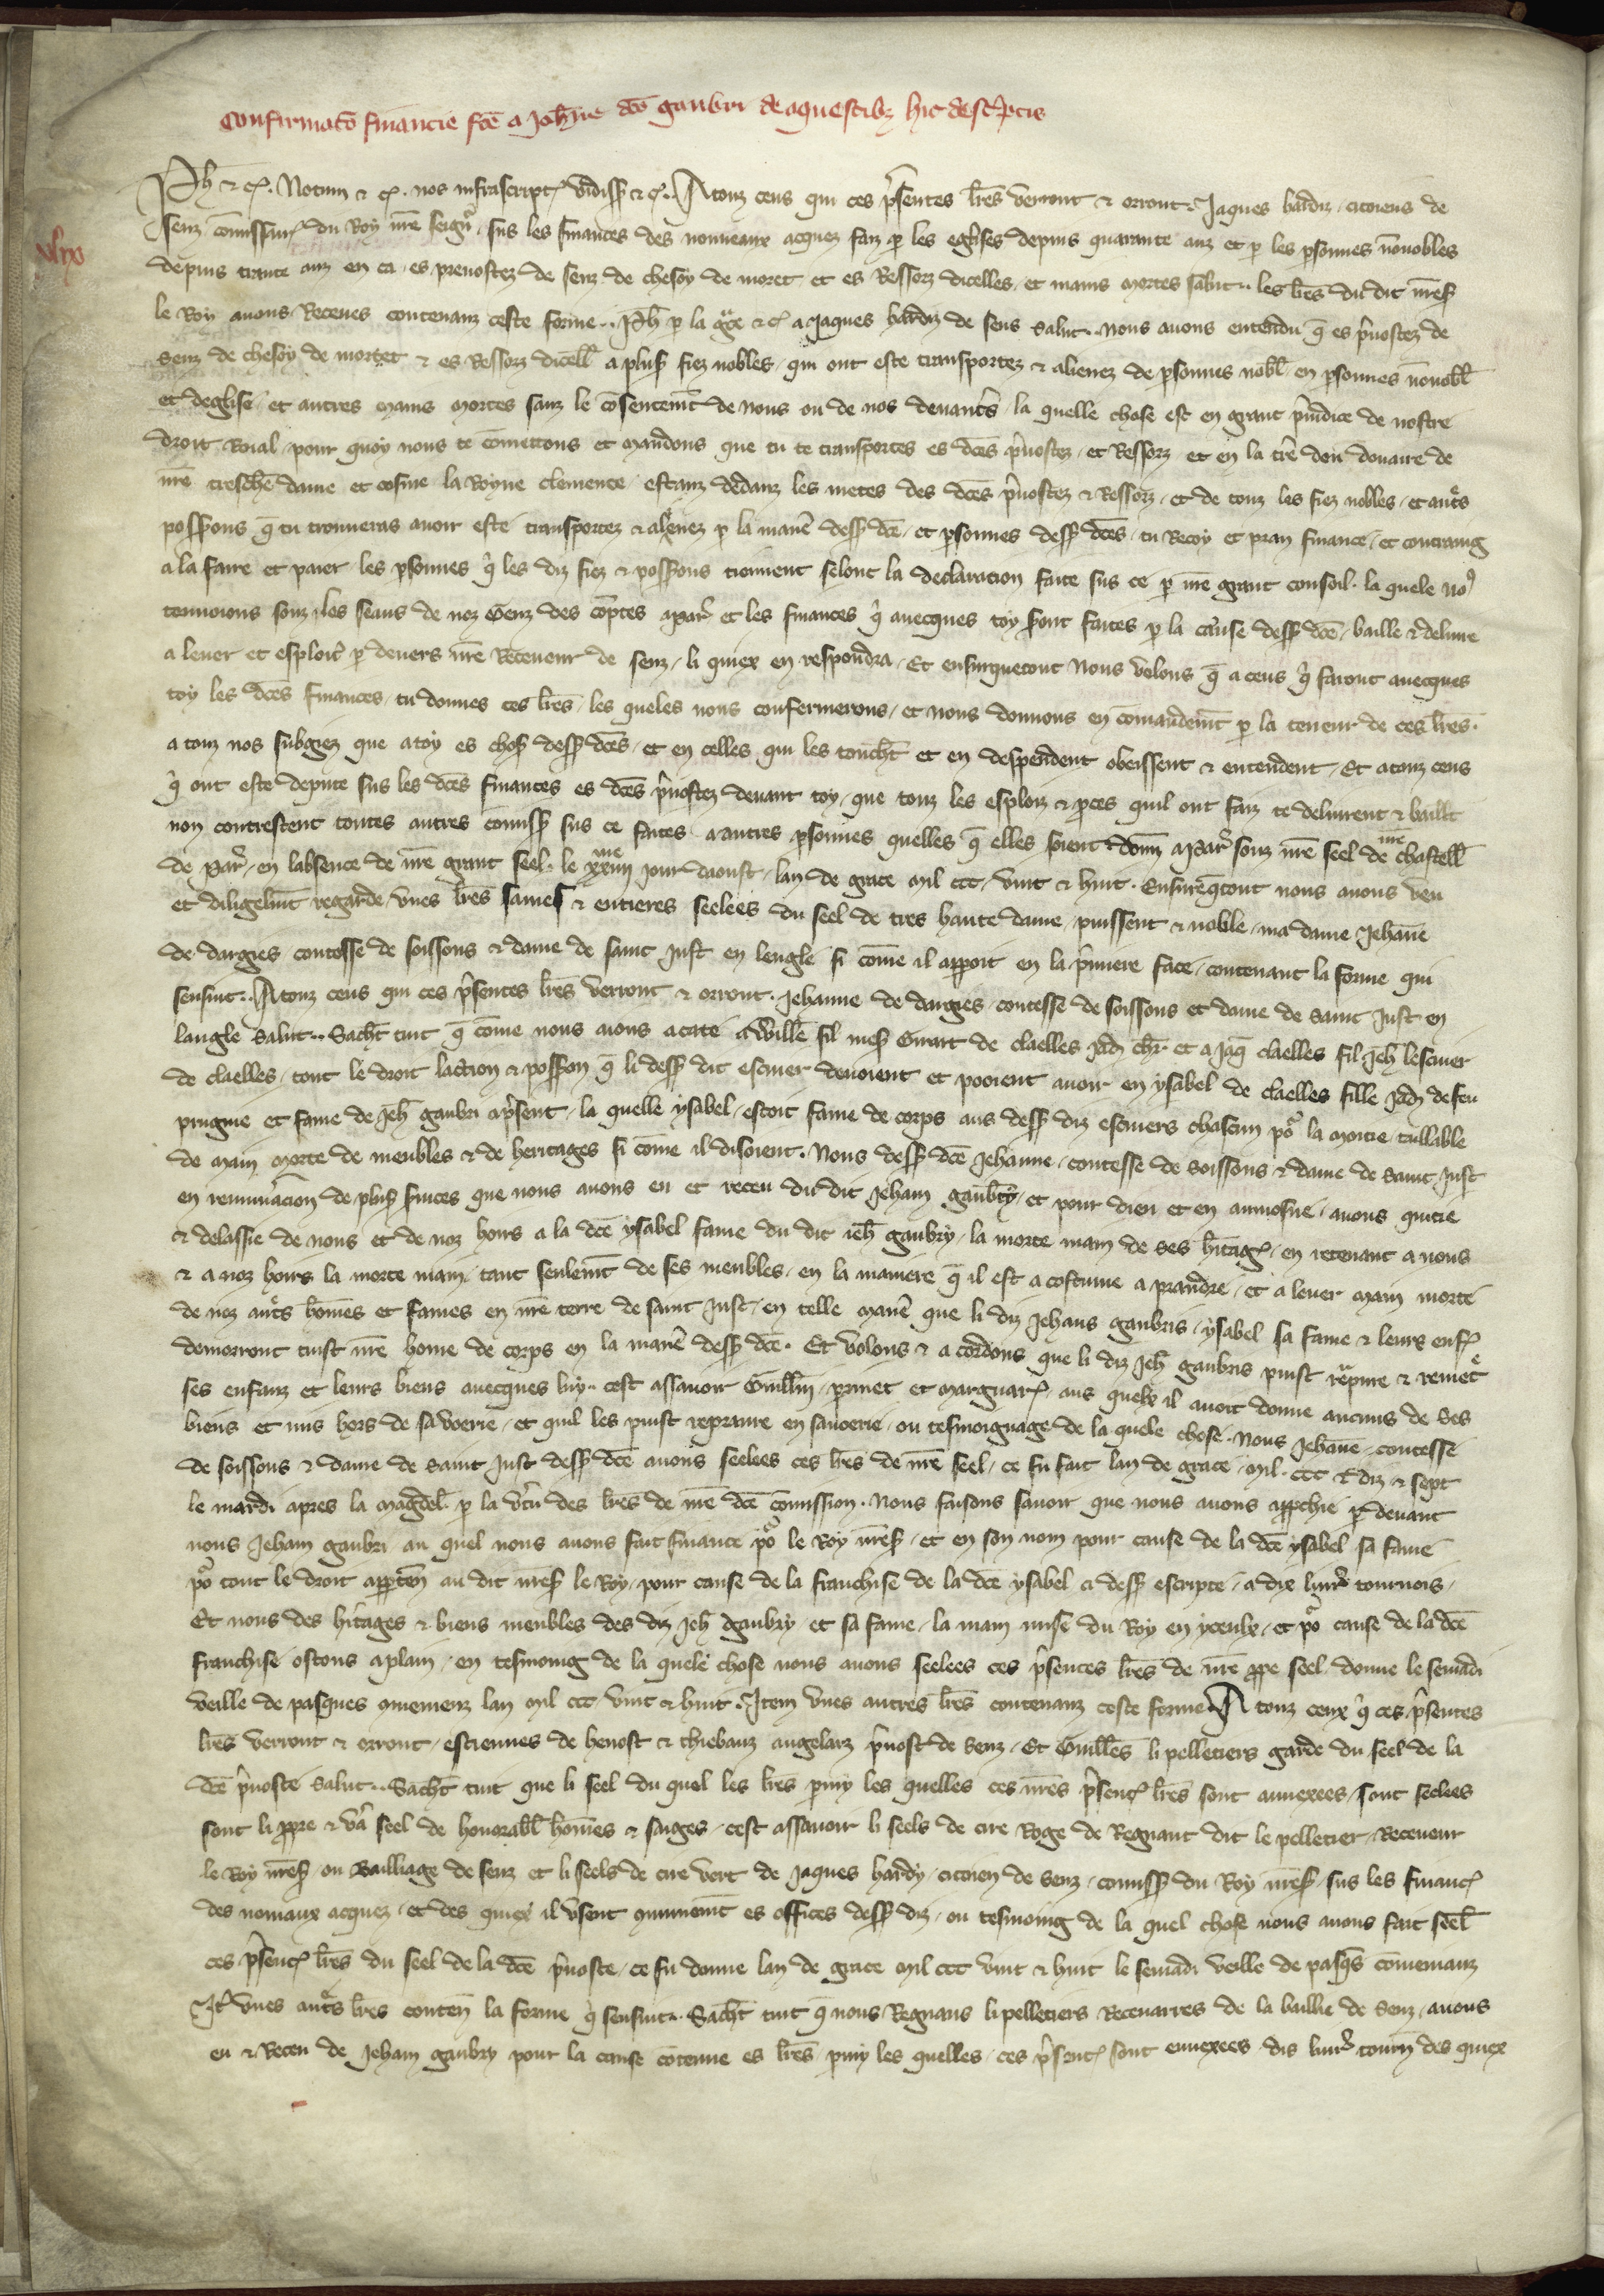 Confirmato financie fce a Johne dco gaubri de aquestibz hic descptis
Ph & c. Notum & c. nos infrascript vidiss & c. A touz ceus qui ces psentes lres verront & orront. Jaques hardiz citoiens de
Senz comissaire du Roy nre seigr sus les finances des nouveaux acquez faiz p les eglises depuis quarante anz et p les psonnes nonnobles
depuis trante anz en ca es prevostez de Senz de chesoy de moret et es Ressorz dicelles et mains mortes salut. les lres du dit mes
le Roy avons Receues contenanz ceste forme. Ph p la gce & c a Jaques hardiz de Sens salut. Nous avons entendu q es pvostez de
Senz de chesoy de mortet & es Ressorz dicell a plus fiez nobles qui ont este transportez & alienez de psonnes nobl en psonnes nonobl
et deglise et autres mains mortes sanz le consentemt de nous ou de nos devancrs la quelle chose est en grant piudice de nostre
droit Roial pour quoy nous te comettons et mandons que tu te transportes es dces pvostez et Ressorz et en la tre dou douaire de
nre treschre dame et cosine la Royne clemence estanz dedanz les metes des dces pvostez & Ressorz et de touz les fiez nobles et autrs
possions q tu trouveras avoir este transportez & alienez p la manie dess dce et psonnes dess dces tu Recoy et pran finance et contraing
a la faire et paier les psonnes q les diz fiez & possions tiennent selonc la declaracion faite sus ce p nre grant consoil. la quele no9
tenvoions souz les seaus de noz Genz des coptes a par et les finances q avecques toy sont faites p la cause dess dce baille & delivre
a lever et esploit p devers nre Receveur de Senz li quiex en respondra Et ensurquetout Nous volons q a ceus q faront avecques
toy les dces finances tu donnes ces lres les queles nous confermerons et nous donnons en comandemt p la teneur de ces lres.
a touz nos subgiez que a toy es chos dess dces et en celles qui les touchet et en despendent obeissent & entendent Et a touz ceus
q ont este depute sus les dces finances es dces pvostez devant toy que touz les esploiz & pces quil ont faiz te delivrent & baillt
non contrestent toutes autres comiss sus ce faites a autres psonnes quelles q elles soient donn a Par souz nre seel de nre chastell
de Par en labsence de nre grant seel le xxiiii me jour daoust lan de grace mil ccc vint & huit. Ensureqtout nous avons veu
et diligelmt regarde unes lres saines & entieres seelees du seel de tres haute dame puissent & noble ma dame Jehane
de dargies contesse de soissons & dame de saint Just en lengle si come il apparoit en la pmiere face contenant la forme qui
sensiut. A touz ceus qui ces psentes lres verront & orront. Jehanne de dargies contesse de soissons et dame de Saint Just en
langle salut. Sachet tuit q come nous aions acate a Willl fil mes Girart de claelles Jadis chr. et a Jaq claelles fil Jeh lescuier
de claelles tout le droit laction & possion q li dess dit escuier devoient et pooient avoir en ysabel de claelles fille Jadis defeu
prugnie et fame de Jeh gaubri apsent la quelle ysabel estoit fame de corps aus dess diz escuiers chascun po la moitie tallable
de main morte de meubles & de heritages si come il disoient. Nous dess dce Jehanne contesse de Soissons & dame de Saint Just
en remuneracion de plus svices que nous avons eu et receu du dit Jeham gaubry et pour dieu et en aumosne avons quitie
& delassie de nous et de noz hours a la dce ysabel fame du dit ieh gaubry la morte main de ses hritag en retenant a nous
& a noz hours la morte main tant seulemt de ses meubles en la maniere q il est a costume a prandre et a lever main morte
de noz autrs homes et fames en nre terre de saint Just en telle manie que li diz Jehans gaubris ysabel sa fame & leurs enf
demorront tuist nre home de corps en la manie dess dce. Et volons & acordons que li diz Jeh gaubris puist repnre & remet
ses enfanz et leurs biens avecques luy cest assavoir Guillm prinet et marguar aus quelx il avoit donne aucuns de ses
biens et mis hors de sa voerie et quil les puist repranre en savoerie ou tesmoignage de la quele chose. Nous Jehane contesse
de soissons & dame de saint Just dess dce avons seelees ces lres de nre seel ce fu fait lan de grace mil ccc & diz & sept
le mardi apres la magdel. p la vtu des lres de nre dce comission. Nous faisons savoir que nous avons approchie p devant
nous Jeham gaubri au quel nous avons fait finance po le Roy mes et en son nom pour cause de la dce ysabel sa fame
po tout le droit apprten au dit mes le Roy pour cause de la franchise de la dce ysabel a dess escripte a dix livr tournois
Et nous des hritages & biens meubles des diz Jeh gaubry et sa fame la main mise du Roy en yceulx et po cause de la dce
franchise ostons a plain en tesmoing de la quele chose nous avons seelees ces psentes lres de nre ppre seel donne le semadi
veille de pasques commenz lan mil ccc vint & huit. Item unes autres lres contenanz ceste forme A touz ceux q ces psentes
lres verront & orront estiennes de henost & thiebauz angelarz pvost de Senz Et Guilles li pelletiers garde du seel de la
dce pvoste salut. Sachet tuit que li seel du quel les lres pmy les quelles ces nres psent lres sont annexees sont seelees
sont li ppre & vr seel de honorabl homes & saiges cest assavoir li seels de cire Roge de Regnaut dit le pelletier Receveur
le Roy mes ou Bailliage de Senz et li seels de cire vert de Jaques hardy citoien de Senz comiss du Roy mes sus les financ
des noviaux acquez et des quiex il usent communemt es offices dess diz ou tesmoing de la quel chose nous avons fait seel
ces psent lres du seel de la dce pvoste ce fu donne lan de grace mil ccc vint & huit le semadi veille de pasqs comemanz
It unes autrs lres conten la forme q sensiut. Sachet tuit q nous Regnaus li pelletiers Recevarres de la baillie de Senz avons
eu & Receu de Jeham gaubry pour la cause cotenue es lres pmy les quelles ces psent sont ennexees dis livr tourn des quiex